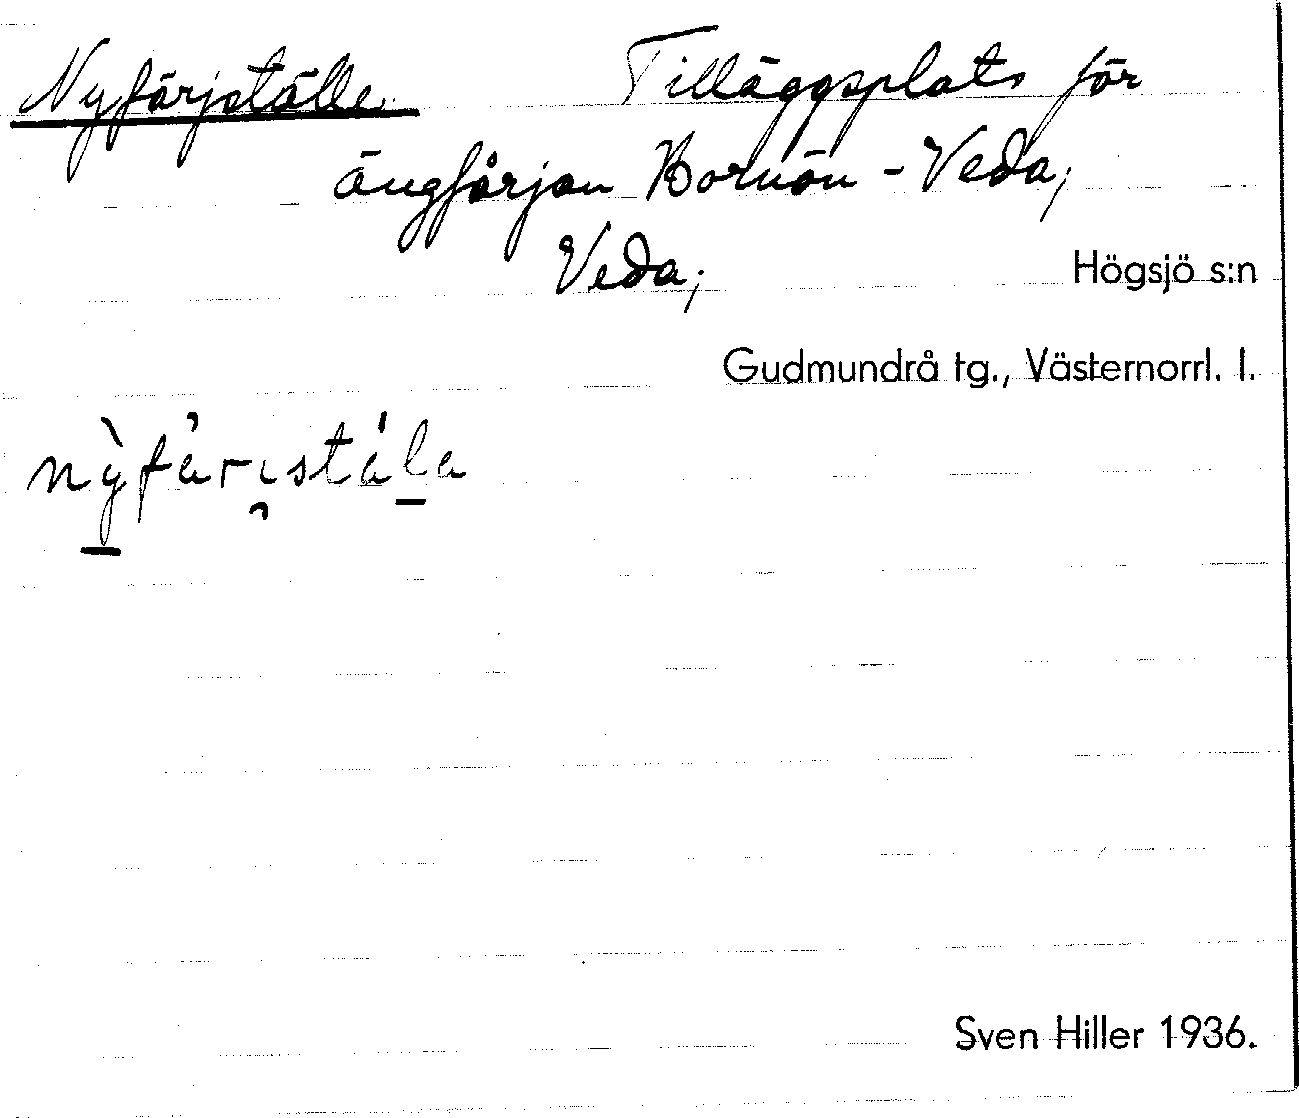 Nyfärjställe Tilläggsplats för
ångfärjan Hornön - Veda,
Veda, Högsjö s:n
Gudmundrå tg., Västernorrl. l.
Sven Hiller 1936.